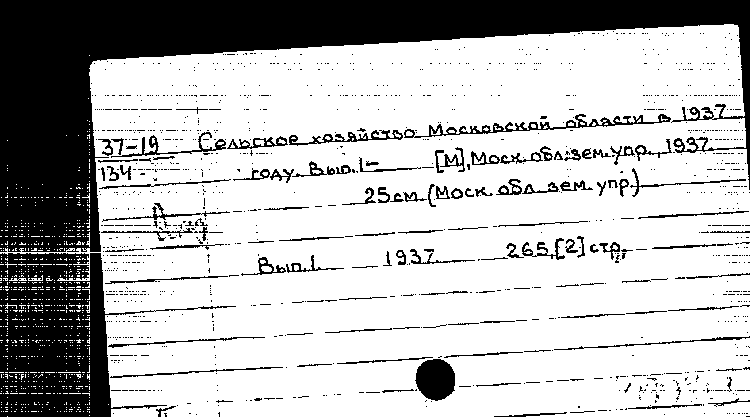 37-19 Сельское хозяйство Московской области в 1937
134 году. Вып.1- [М], Моск. обл. зем. упр., 1937.
25 см. (Моск. обл. зем. упр.)
Вып.1. 1937. 265,[2] стр.